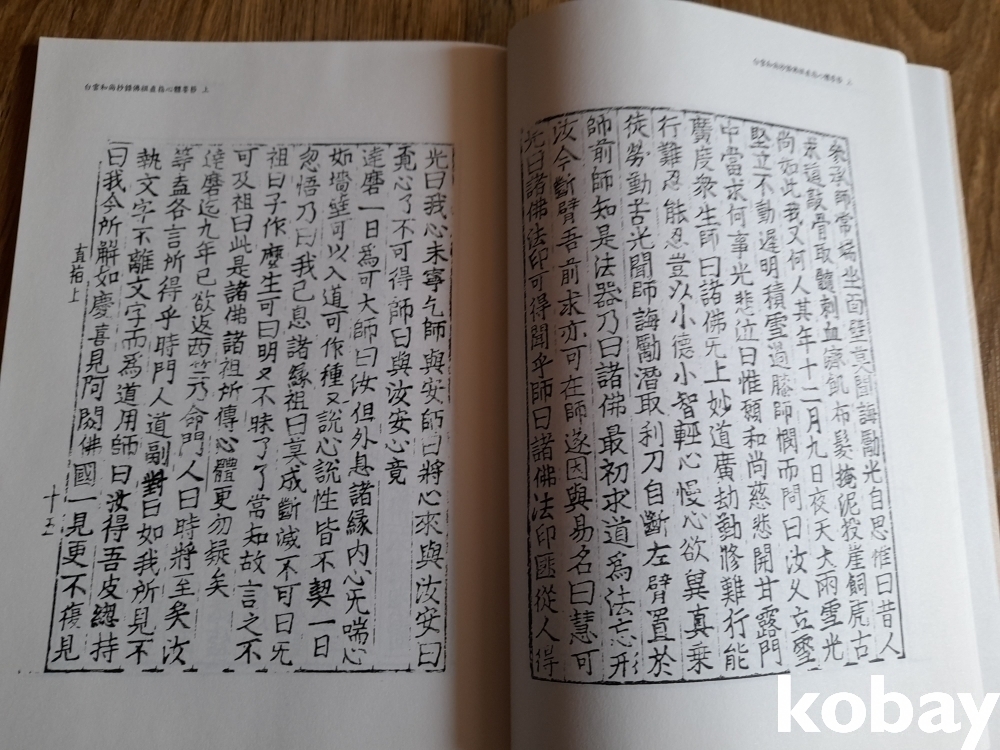 白雲和尚抄錄佛祖直指心體要節 上
參承師常端坐面壁莫聞誨勵光自思惟曰昔人
求道敲骨取髓刺血療飢布髮掩泥投崖飼虎古
尚如此我又何人其年十二月九日夜天大雨雪光
堅立不動遲明積雪過膝師憫而問曰汝久立雪
中當求何事光悲泣曰惟願和尚慈悲開甘露門
廣度衆生師曰諸佛无上妙道廣劫勤修難行能
行難忍能忍豈以小德小智輕心慢心欲異真乗
徒勞勤苦光聞師誨勵潜取利刀自斷左臂置於
師前師知是法器乃曰諸佛最初求道爲法忘形
汝今斷臂吾前求亦可在師遂因與易名曰慧可
光曰諸佛法印可得聞乎師曰諸佛法印匪從人得
白雲和尚抄錄佛祖直指心體要節 上
光曰我心未寧乞師與安師曰將心來與汝安曰
覓心了不可得師曰與汝安心竟
達磨一日爲可大師曰汝但外息諸緣內心无喘心
如墻壁可以入道可作種又說心說性皆不契一日
忽悟乃曰我已息諸緣祖曰莫成斷滅不可曰无
祖曰子作麽生可曰明又不昧了了常知故言之不
可及祖曰此是諸佛諸祖所傳心體更勿疑矣
達磨迄九年已欲返西竺乃命門人曰時將至矣汝
等盍各言所得乎時門人道副對曰如我所見不
執文字不離文字而爲道用師曰汝得吾皮總持
曰我今所解如慶喜見阿閦佛國一見更不復見
直指上
十五
kobay